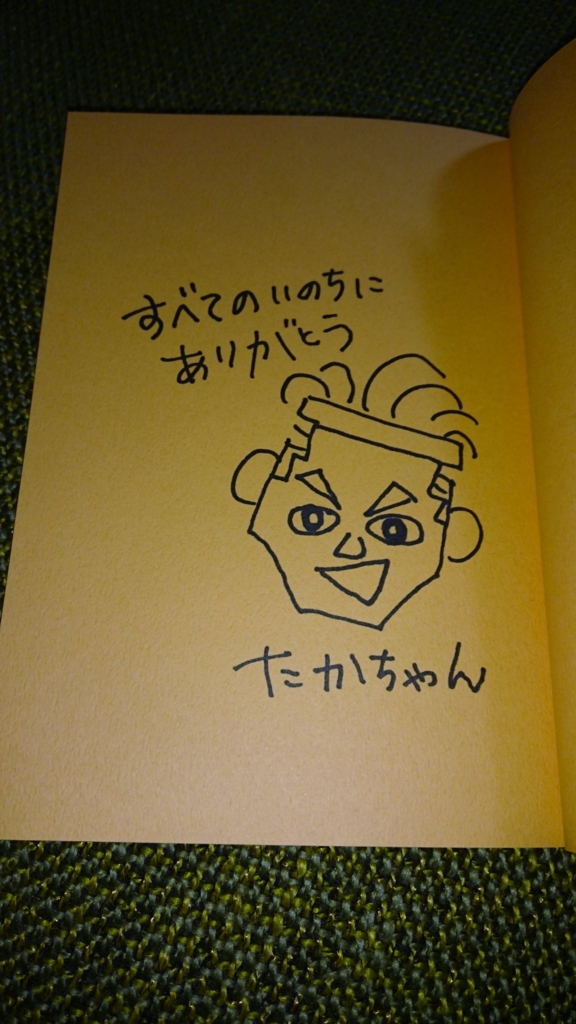 すべてのいのちに
ありがとう
たかちゃん